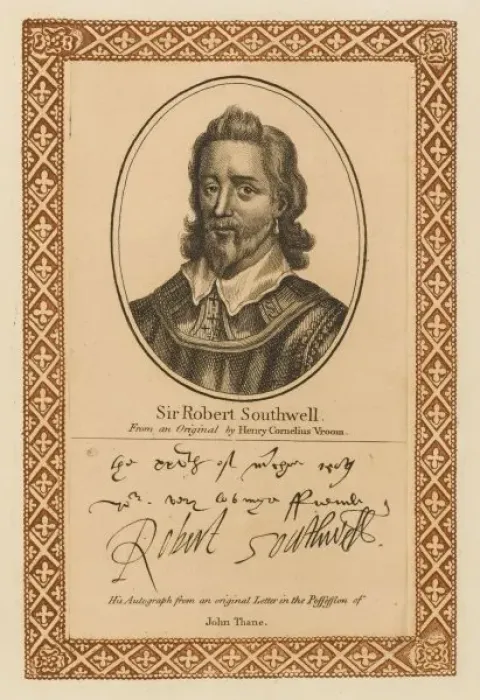 Sir Robert Southwell.
From an Original by Henry Cornelius Vroom.
yor. very
Robert Southwell.
His Autograph from an original Letter in the Poſſeſſion of
John Thane.